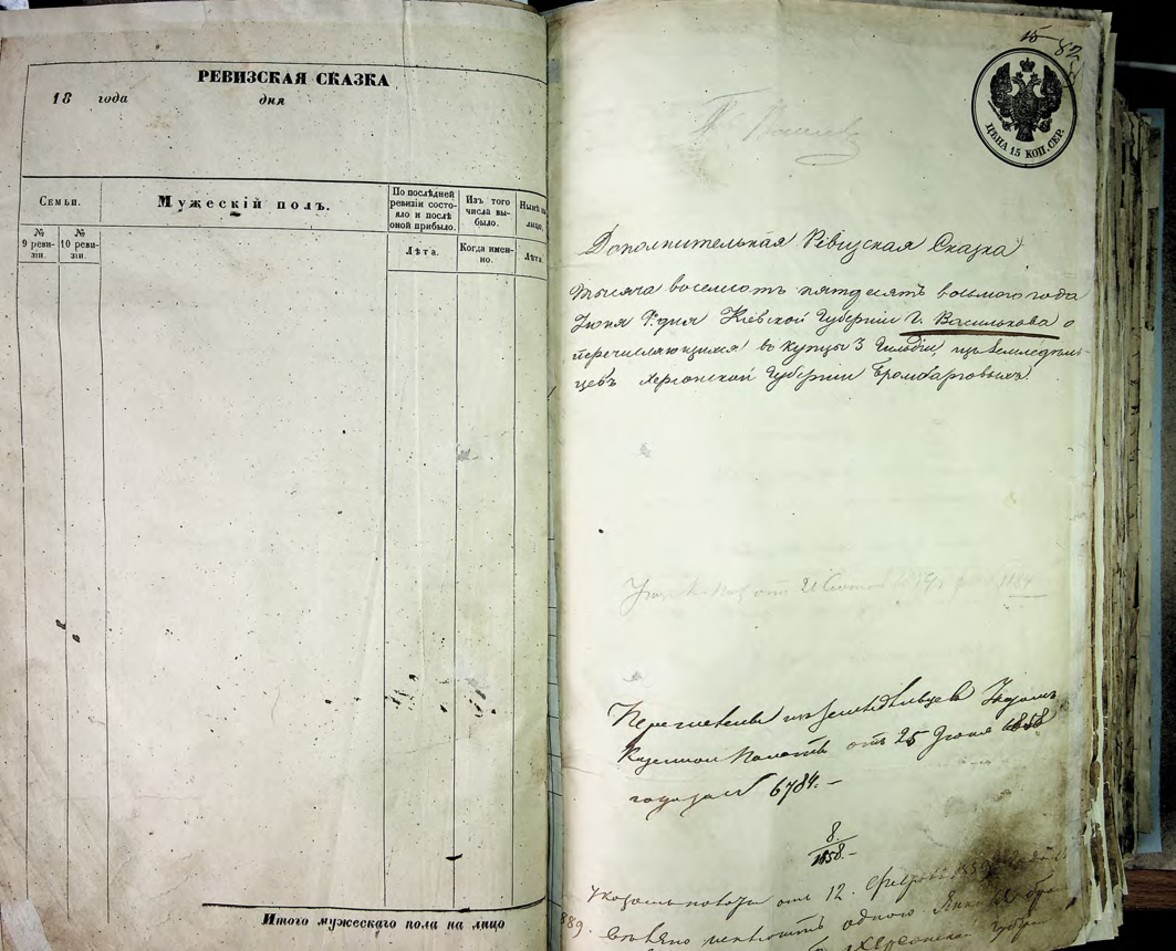 РЕВИЗСКАЯ СКАЗКА
18 года дня
Семьи.
Мужескій полъ.
По послѣдней
ревизіи состо-
яло и послѣ
оной прибыло.
Изъ того
числа вы-
было.
Нынѣ на
лицо.
№
9 реви-
зіи.
№
10 реви-
зіи.
Лѣта.
Когда имен-
но.
Лѣта.
Итого мужескаго пола на лицо
15
82
ЦѢНА 15 КОП. СЕР.
Дополнительная Ревизская Сказка
тысяча восемсотъ пятдесятъ восьмого года
Іюня дня Кіевской Губерніи Г. Василькова о
перечисляющихся въ купцы 3 Гильдіи, изъ Земледѣль-
цевъ Херсонской Губерніи Бромбарговыхъ.
1184
Перечислены изъ земледѣльцевъ Указомъ
Казенной Палаты отъ 25 Іюня 1858
года за № 6784.-
8
1858.-
889.
Указомъ палаты отъ 12. Февраля 1859
велѣно исключить одного
Херсонской Губерніи